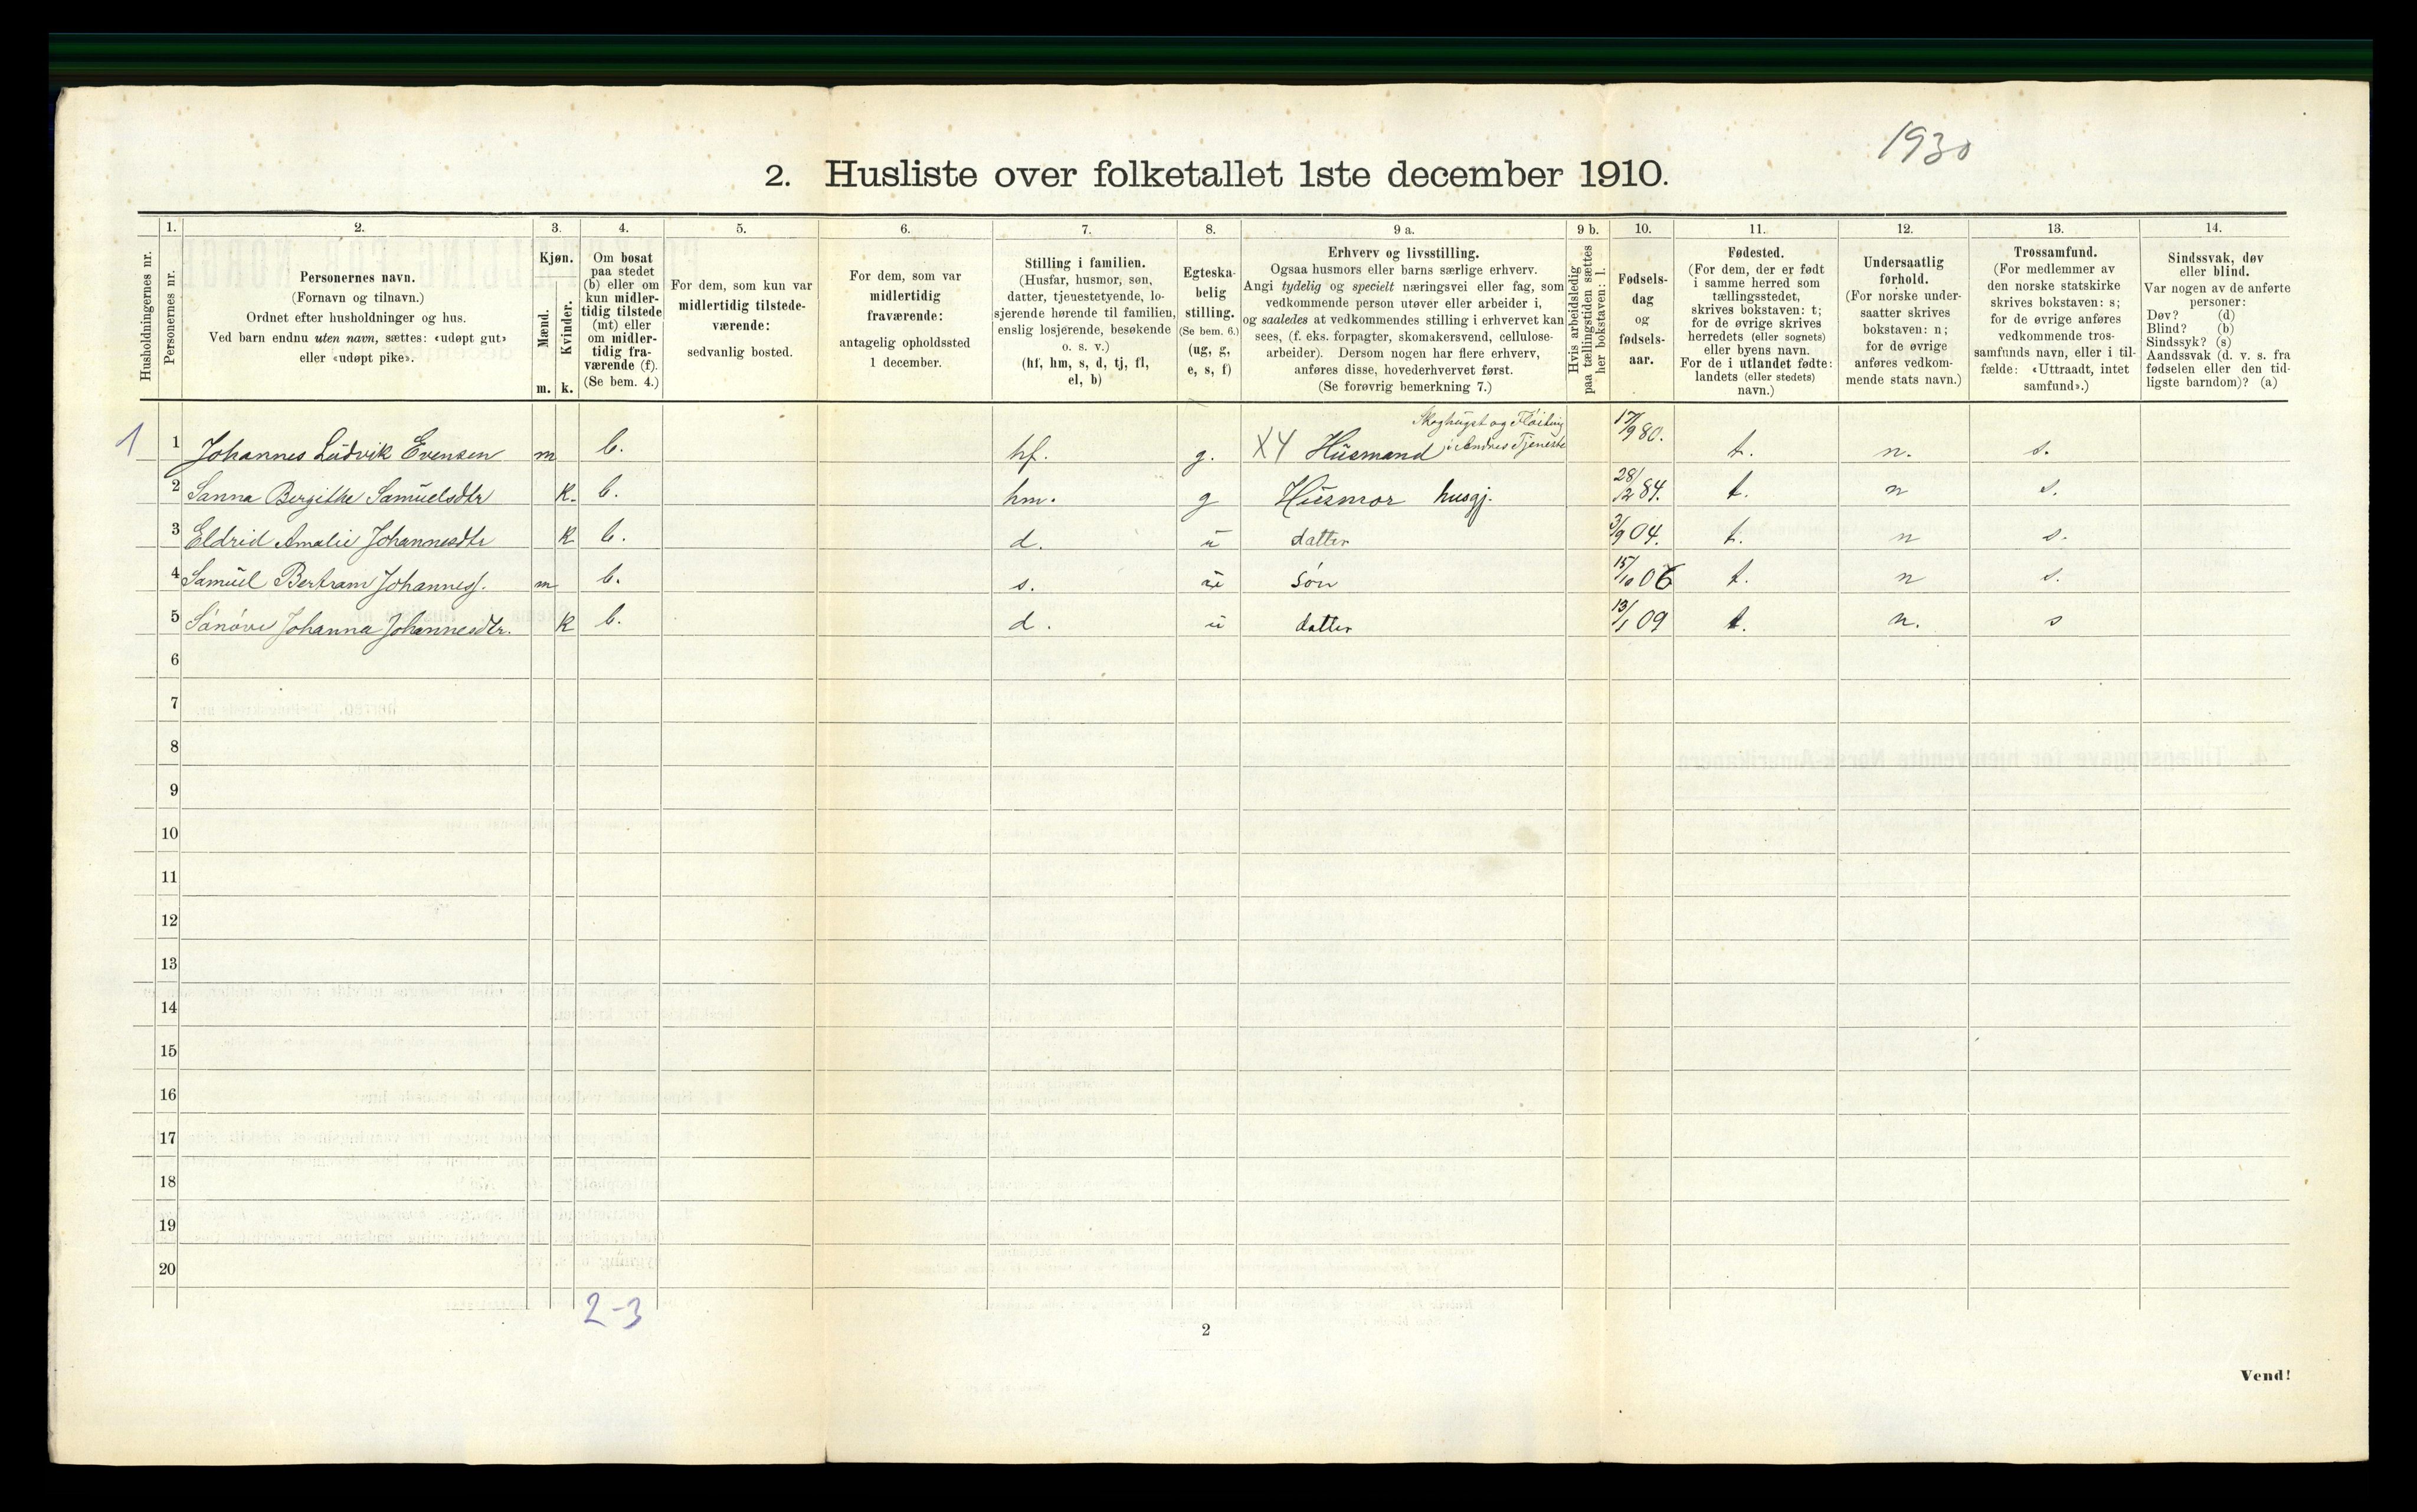 1930
2. Husliste over folketallet 1ste december 1910.
1. 2. 3. 4. 5. 6. 7. 8. 9 a. 9 b. 10. 11. 12. 13. 14.
Husholdningernes nr.
Personernes nr.
Personernes navn.
(Fornavn og tilnavn.)
Ordnet efter husholdninger og hus.
Ved barn endnu uten navn, sættes: «udøpt gut»
eller «udøpt pike».
Kjøn.
Mænd.
Kvinder.
m. k.
Om bosat
paa stedet
(b) eller om
kun midler-
tidig tilstede
(mt) eller
om midler-
tidig fra-
værende (f).
(Se bem. 4.)
For dem, som kun var
midlertidig tilstede-
værende:
sedvanlig bosted.
For dem, som var
midlertidig
fraværende:
antagelig opholdssted
1 december.
Stilling i familien.
(Husfar, husmor, søn,
datter, tjenestetyende, lo-
sjerende hørende til familien,
enslig losjerende, besøkende
o. s. v.)
(hf, hm, s, d, tj, fl,
el, b)
Egteska-
belig
stilling.
(Se bem. 6.)
(ug, g,
e, s, f)
Erhverv og livsstilling.
Ogsaa husmors eller barns særlige erhverv.
Angi tydelig og specielt næringsvei eller fag, som
vedkommende person utøver eller arbeider i,
og saaledes at vedkommendes stilling i erhvervet kan
sees, (f. eks. forpagter, skomakersvend, cellulose-
arbeider). Dersom nogen har flere erhverv,
anføres disse, hovederhvervet først.
(Se forøvrig bemerkning 7.)
Hvis arbeidsledig
paa tællingstiden sættes
her bokstaven: l.
Fødsels-
dag
og
fødsels-
aar.
Fødested.
(For dem, der er født
i samme herred som
tællingsstedet,
skrives bokstaven: t;
for de øvrige skrives
herredets (eller sognets)
eller byens navn.
For de i utlandet fødte:
landets (eller stedets)
navn.)
Undersaatlig
forhold.
(For norske under-
saatter skrives
bokstaven: n;
for de øvrige
anføres vedkom-
mende stats navn.)
Trossamfund.
(For medlemmer av
den norske statskirke
skrives bokstaven: s;
for de øvrige anføres
vedkommende tros-
samfunds navn, eller i til-
fælde: «Uttraadt, intet
samfund».)
Sindssvak, døv
eller blind.
Var nogen av de anførte
personer:
Døv? (d)
Blind? (b)
Sindssyk? (s)
Aandssvak (d. v. s. fra
fødselen eller den tid-
ligste barndom)? (a)
Skoghugst og Fløitning
1 1 Johannes Ludvik Evensen m b. hf. g. X4 Husmand i Andres Tjeneste 17/9 80. t. n. s.
2 Sanna Bergithe Samuelsdtr k. b. hm. g Husmor husgj. 28/12 84. t. n s.
3 Eldrid Amalie Johannesdtr k b. d. u datter 3/9 04. t. n s.
4 Samuel Bertram Johanness. m b. s. u søn 15/10 06 t. n s.
5 Sønøve Johanna Johannesdtr. k b. d. u datter 13/1 09 t. n. s
6
7
8
9
10
11
12
13
14
15
16
17
18
19
20
2-3
2
Vend!